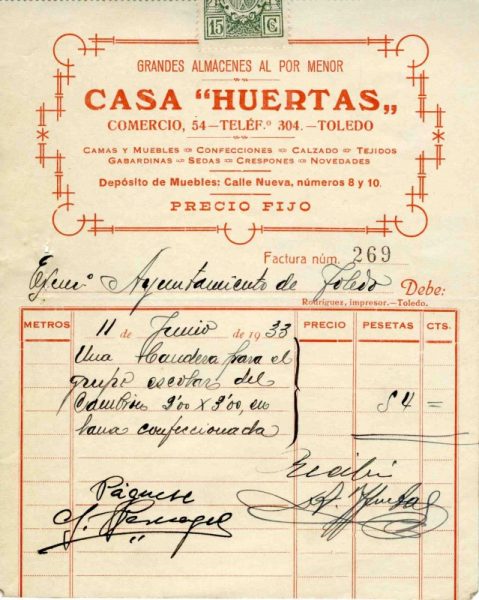 15 C
GRANDES ALMACENES AL POR MENOR
CASA "HUERTAS„
COMERCIO, 54—TELÉF.º 304.—TOLEDO
CAMAS Y MUEBLES CONFECCIONES CALZADO TEJIDOS
GABARDINAS SEDAS CRESPONES NOVEDADES
Depósito de Muebles: Calle Nueva, números 8 y 10.
PRECIO FIJO
Factura núm. 269
Ayuntamiento de Toledo Debe:
Rodríguez, impresor.—Toledo.
METROS 11 de Junio de 1933 PRECIO PESETAS CTS.
Una bandera para el
grupo escolar del
2'00 x 3'00, en
lana confeccionada
84 =
Recibí
Páguese